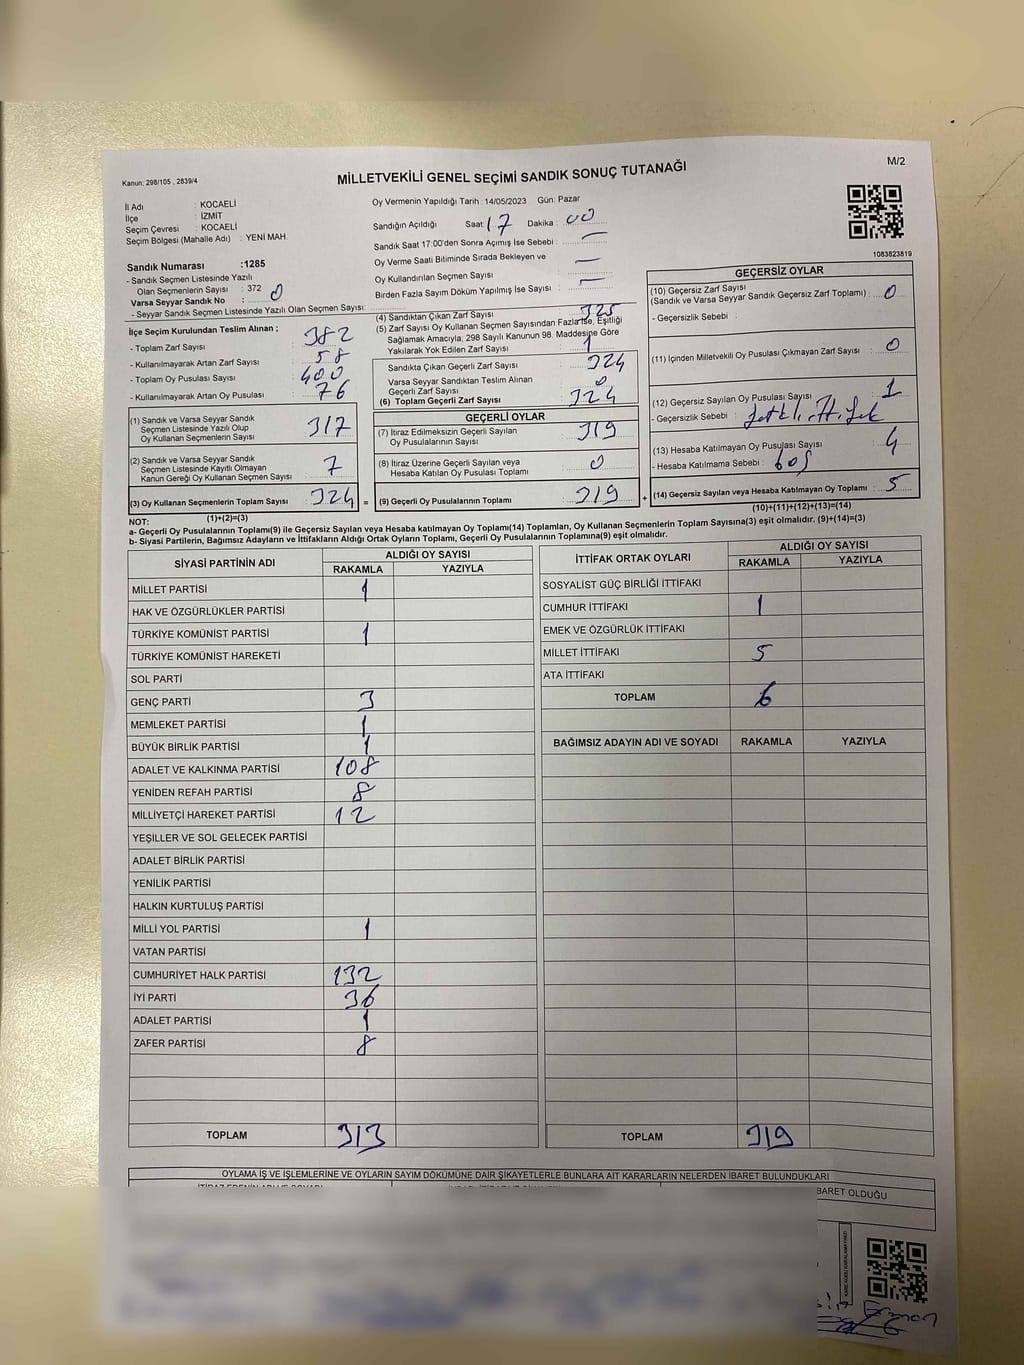 Kanun; 298/105 , 2839/4
MİLLETVEKİLİ GENEL SEÇİMİ SANDIK SONUÇ TUTANAĞI
M/2
İl Adı : KOCAELİ
İlçe : İZMİT
Seçim Çevresi : KOCAELİ
Seçim Bölgesi (Mahalle Adı) : YENİ MAH.
Sandık Numarası :1285
- Sandık Seçmen Listesinde Yazılı
Olan Seçmenlerin Sayısı : 372
Varsa Seyyar Sandık No : 0
- Seyyar Sandık Seçmen Listesinde Yazılı Olan Seçmen Sayısı:
Oy Vermenin Yapıldığı Tarih : 14/05/2023 Gün: Pazar
Sandığın Açıldığı Saat: 17 Dakika : 00
Sandık Saat 17:00'den Sonra Açımış İse Sebebi : —
Oy Verme Saati Bitiminde Sırada Bekleyen ve
Oy Kullandırılan Seçmen Sayısı —
Birden Fazla Sayım Döküm Yapılmış İse Sayısı : —
1083823819
İlçe Seçim Kurulundan Teslim Alınan ;
- Toplam Zarf Sayısı : 382
- Kullanılmayarak Artan Zarf Sayısı : 58
- Toplam Oy Pusulası Sayısı : 400
- Kullanılmayarak Artan Oy Pusulası : 76
(1) Sandık ve Varsa Seyyar Sandık
Seçmen Listesinde Yazılı Olup
Oy Kullanan Seçmenlerin Sayısı : 317
(2) Sandık ve Varsa Seyyar Sandık
Seçmen Listesinde Kayıtlı Olmayan
Kanun Gereği Oy Kullanan Seçmen Sayısı : 7
(3) Oy Kullanan Seçmenlerin Toplam Sayısı 324 =
(1)+(2)=(3)
(4) Sandıktan Çıkan Zarf Sayısı : 325
(5) Zarf Sayısı Oy Kullanan Seçmen Sayısından Fazla İse, Eşitliği
Sağlamak Amacıyla; 298 Sayılı Kanunun 98. Maddesine Göre
Yakılarak Yok Edilen Zarf Sayısı : 1
Sandıkta Çıkan Geçerli Zarf Sayısı : 324
Varsa Seyyar Sandıktan Teslim Alınan
Geçerli Zarf Sayısı : 0
(6) Toplam Geçerli Zarf Sayısı : 324
GEÇERLİ OYLAR
(7) İtiraz Edilmeksizin Geçerli Sayılan
Oy Pusulalarının Sayısı : 319
(8) İtiraz Üzerine Geçerli Sayılan veya
Hesaba Katılan Oy Pusulası Toplamı : 0
(9) Geçerli Oy Pusulalarının Toplamı : 319 +
GEÇERSİZ OYLAR
(10) Geçersiz Zarf Sayısı
(Sandık ve Varsa Seyyar Sandık Geçersiz Zarf Toplamı) : 0
- Geçersizlik Sebebi :
(11) İçinden Milletvekili Oy Pusulası Çıkmayan Zarf Sayısı : 0
(12) Geçersiz Sayılan Oy Pusulası Sayısı : 1
- Geçersizlik Sebebi :
(13) Hesaba Katılmayan Oy Pusulası Sayısı : 4
- Hesaba Katılmama Sebebi : boş
(14) Geçersiz Sayılan veya Hesaba Katılmayan Oy Toplamı : 5
(10)+(11)+(12)+(13)=(14)
NOT:
a- Geçerli Oy Pusulalarının Toplamı(9) ile Geçersiz Sayılan veya Hesaba katılmayan Oy Toplamı(14) Toplamları, Oy Kullanan Seçmenlerin Toplam Sayısına(3) eşit olmalıdır. (9)+(14)=(3)
b- Siyasi Partilerin, Bağımsız Adayların ve İttifakların Aldığı Ortak Oyların Toplamı, Geçerli Oy Pusulalarının Toplamına(9) eşit olmalıdır.
SİYASİ PARTİNİN ADI ALDIĞI OY SAYISI
RAKAMLA YAZIYLA
MİLLET PARTİSİ 1
HAK VE ÖZGÜRLÜKLER PARTİSİ
TÜRKİYE KOMÜNİST PARTİSİ 1
TÜRKİYE KOMÜNİST HAREKETİ
SOL PARTİ
GENÇ PARTİ 3
MEMLEKET PARTİSİ 1
BÜYÜK BİRLİK PARTİSİ 1
ADALET VE KALKINMA PARTİSİ 108
YENİDEN REFAH PARTİSİ 8
MİLLİYETÇİ HAREKET PARTİSİ 12
YEŞİLLER VE SOL GELECEK PARTİSİ
ADALET BİRLİK PARTİSİ
YENİLİK PARTİSİ
HALKIN KURTULUŞ PARTİSİ
MİLLİ YOL PARTİSİ 1
VATAN PARTİSİ
CUMHURİYET HALK PARTİSİ 132
İYİ PARTİ 36
ADALET PARTİSİ 1
ZAFER PARTİSİ 8
TOPLAM 313
İTTİFAK ORTAK OYLARI ALDIĞI OY SAYISI
RAKAMLA YAZIYLA
SOSYALİST GÜÇ BİRLİĞİ İTTİFAKI
CUMHUR İTTİFAKI 1
EMEK VE ÖZGÜRLÜK İTTİFAKI
MİLLET İTTİFAKI 5
ATA İTTİFAKI
TOPLAM 6
BAĞIMSIZ ADAYIN ADI VE SOYADI RAKAMLA YAZIYLA
TOPLAM 319
OYLAMA İŞ VE İŞLEMLERİNE VE OYLARIN SAYIM DÖKÜMÜNE DAİR ŞİKAYETLERLE BUNLARA AİT KARARLARIN NELERDEN İBARET BULUNDUKLARI
BARET OLDUĞU